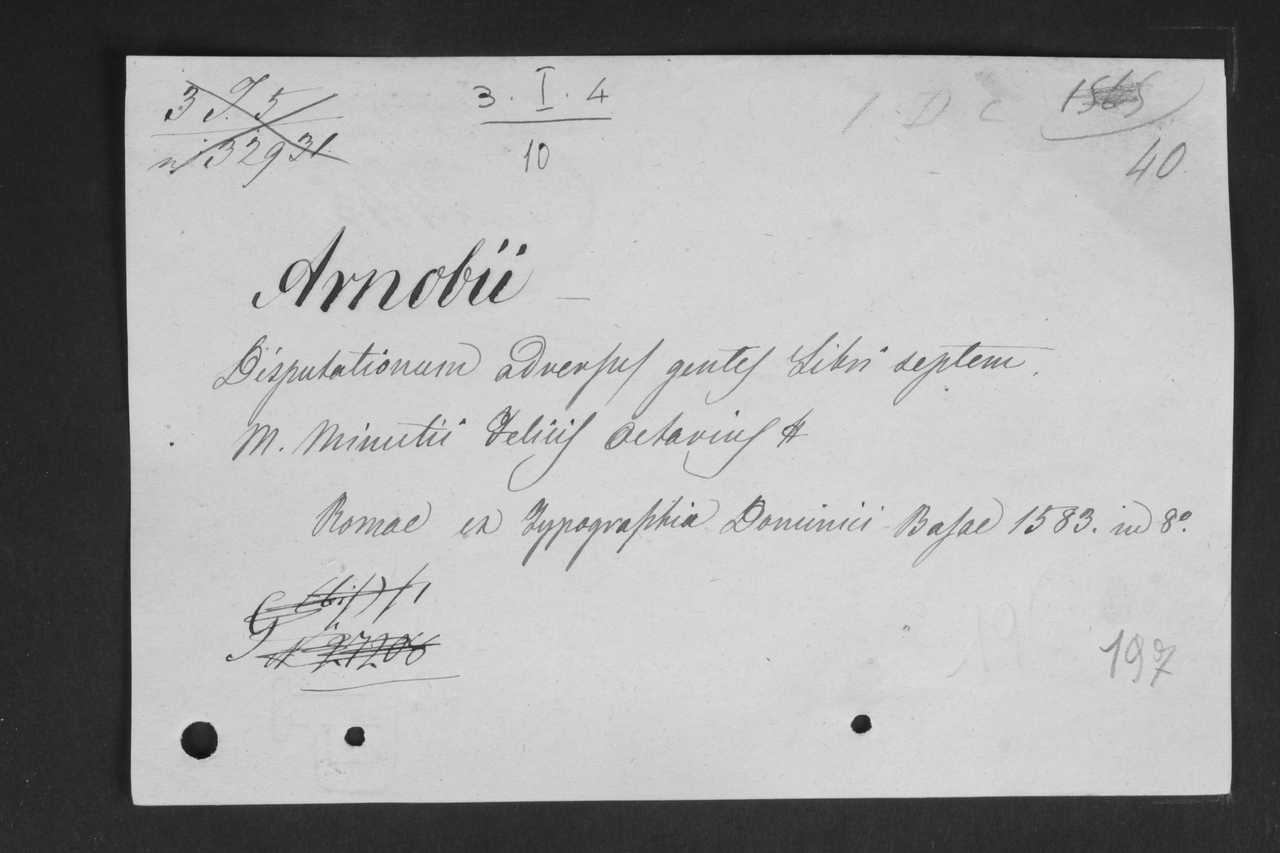 3 I. 5
n 32931
3. I. 4
10
1 D C
1565
40
Arnobii
Disputationum adversus gentes Libri septem.
M. Minutii Felicis Octavius #
Romae ex Typographia Dominici Basae 1583. in 8º.
G
n 27206
197